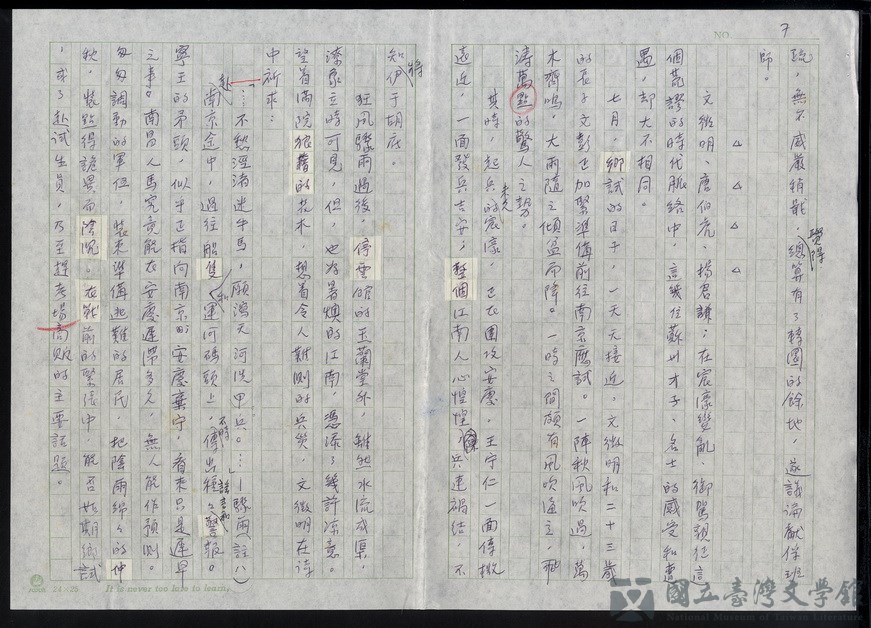 7
NO.
疏，無不威嚴稍戢，覺得總算有了轉圜的餘地，遂議論獻俘班
師。
△ △ △ △
文徵明、唐伯虎、楊君謙；在宸濠變亂、御駕親征這
個荒謬的時代脈絡中，這幾位蘇州才子、名士的感受和遭
遇，却大不相同。
七月，鄉試的日子，一天天接近，文徵明和二十三歲
的長子文彭正加緊準備前往南京應試。一陣秋風吹過，萬
木齊鳴，大雨隨之傾盆而降。一時之間頗有風吹海立，飛
濤萬點的驚人之勢。
其時，起兵未久的宸濠，正在圍攻安慶，王守仁一面傳檄
遠近，一面發兵吉安；整個江南人心惶惶，兵連禍結，不
知伊于胡底。
狂風驟雨過後，停雲館的玉蘭堂外，雖然水流成渠，
涼氣立時可見，但，也為暑燠的江南，憑添了幾許涼意。
望着滿院狼藉的花木，想着令人難測的兵災，文徵明在詩
中祈求：
「…不愁涇渚迷牛馬，願瀉天河洗甲兵。…」—驟雨（註八）
赴南京途中，過往船隻和運河碼頭上，不時傳出種種謠言和警報。
寧王的矛頭，似乎正指向南京，安慶棄守，看來只是遲早
之事。南昌人馬究竟能在安慶遲滯多久，無人能作預測。
匆匆調動的軍伍，裝束準備逃難的居民，把陰雨綿綿的仲
秋，裝點得詭異而陰沉。在戰前的緊張中，能否如期鄉試
，成了赴試生員，乃至趕考場商販的主要話題。
24×25
It is never too late to learn.
國立臺灣文學館
National Museum of Taiwan Literature